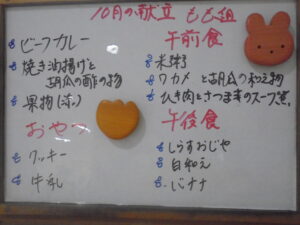 10月の献立 もも組
ビーフカレー
焼き油揚げと
胡瓜の酢の物
果物(赤)
おやつ
クッキー
牛乳
午前食
米粥
ワカメと胡瓜の和え物
ひき肉とさつま芋のスープ煮
午後食
しらすおじや
白和え
バナナ